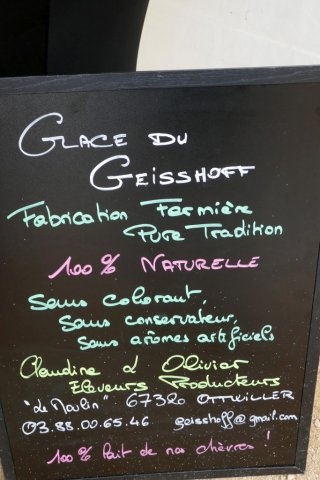 GLACE DU
GEISSHOFF
Fabrication Fermière
Pure Tradition
100% NATURELLE
Sans colorant,
Sans conservateur,
Sans arômes artificiels
Claudine & Olivier
Eleveurs Producteurs
"Le Moulin" 67320 OTTWILLER
03.88.00.65.46 geisshoff@gmail.com
100% lait de nos chèvres !